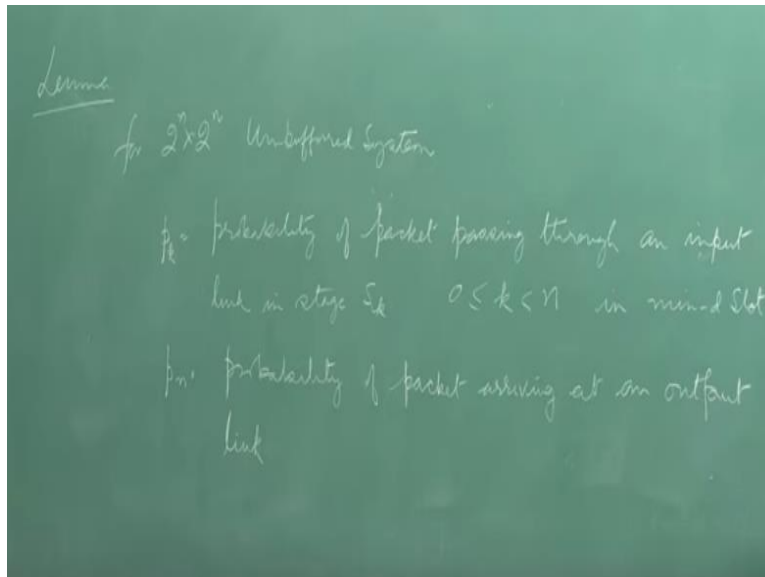 Lemma
for 2ⁿ×2ⁿ Unbuffered System
pₖ = probability of packet passing through an input
link in stage Sₖ 0 ≤ k < n in mini-d slot
pₙ = probability of packet arriving at an output
link